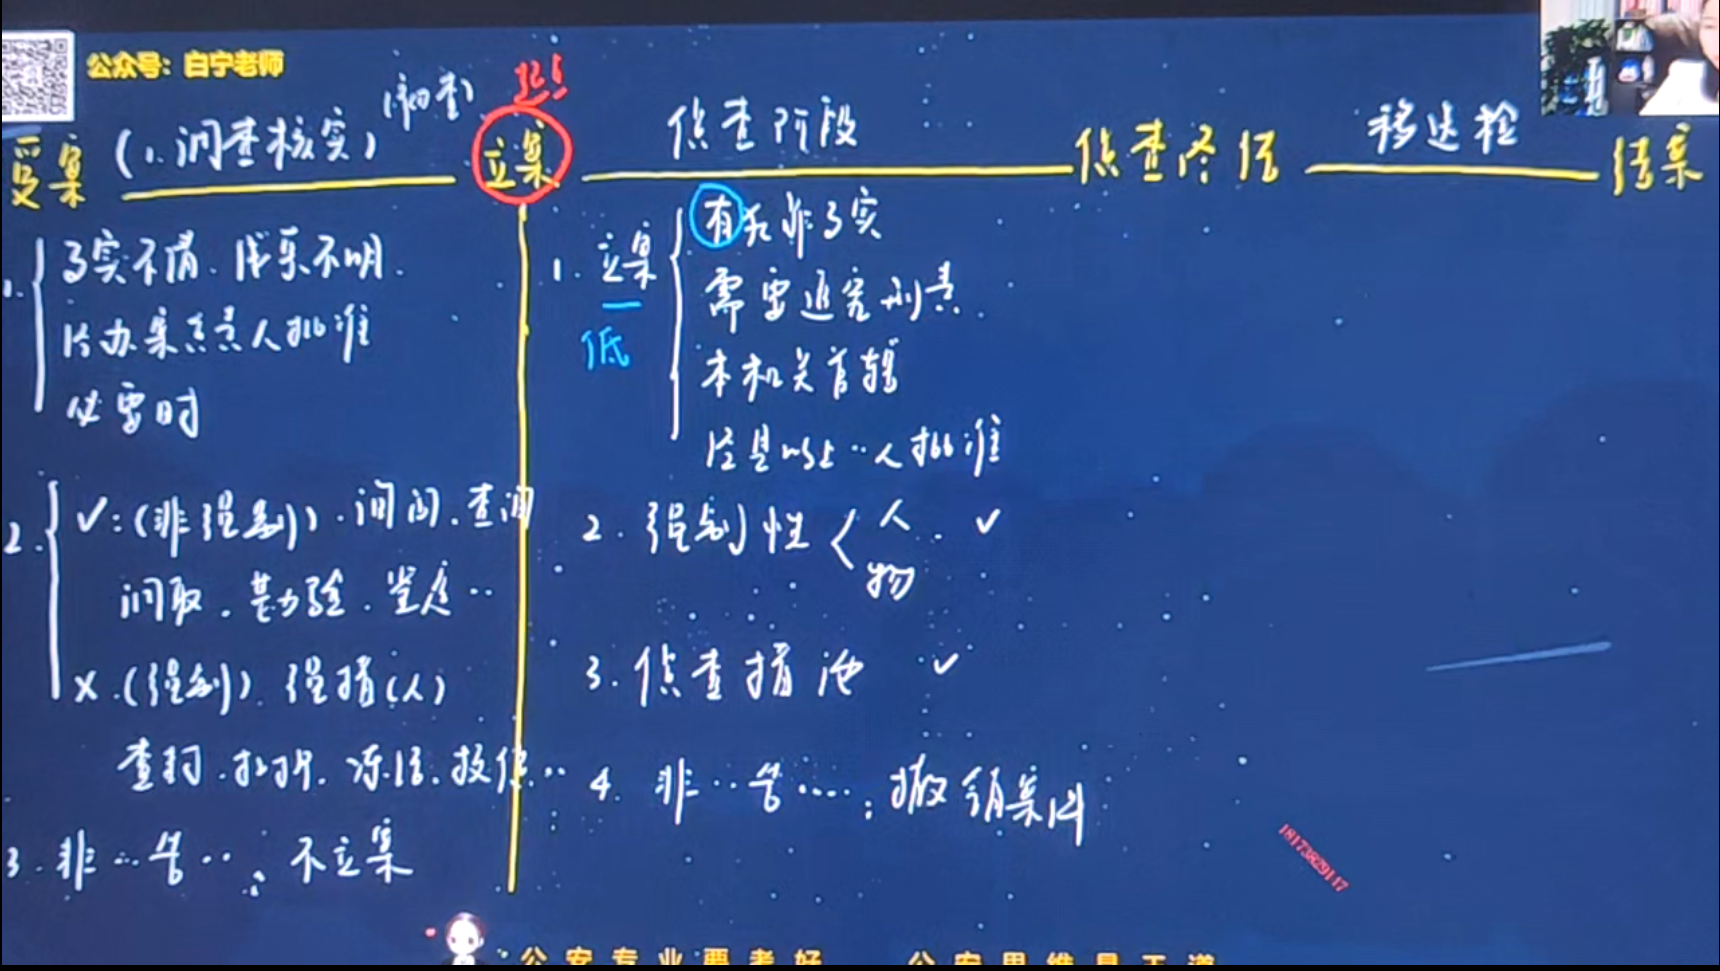 公众号：白宁老师
(初查)
起点
受案 (1.调查核实) 立案 侦查阶段 侦查终结 移送检 结案
1. 事实不清.线索不明.
经办案负责人批准
必要时
2. ✓:(非强制).询问.查询
调取.勘验.鉴定..
×.(强制).强措(人)
查封.扣押.冻结.技侦..
3.非..告..：不立案
1.立案
低
有犯罪事实
需要追究刑责.
本机关管辖
经县以上..人批准
2.强制性 人. ✓
物
3.侦查措施 ✓
4.非..告....：撤销案件
18173829147
公安专业要考好 公安思维是王道